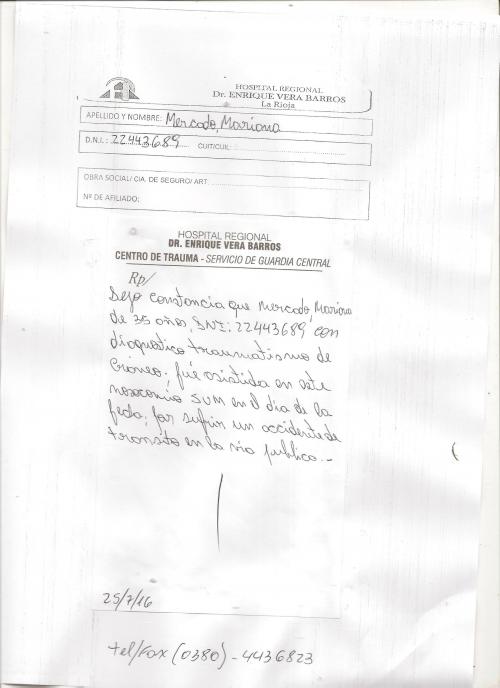 HOSPITAL REGIONAL
Dr. ENRIQUE VERA BARROS
La Rioja
APELLIDO Y NOMBRE: Mercado, Mariana
D.N.I.: 22443689 CUIT/CUIL:
OBRA SOCIAL/ CIA. DE SEGURO/ ART
Nº DE AFILIADO:
HOSPITAL REGIONAL
DR. ENRIQUE VERA BARROS
CENTRO DE TRAUMA - SERVICIO DE GUARDIA CENTRAL
Rp/
Dejo constancia que Mercado, Mariana
de 35 años, DNI: 22443689 con
diagnostico traumatismo de
Craneo; fué asistida en este
nosocomio SUM en el dia de la
fecha, por sufrir un accidente de
transito en la via publica.-
25/7/16
tel/Fax (0380) - 4436823